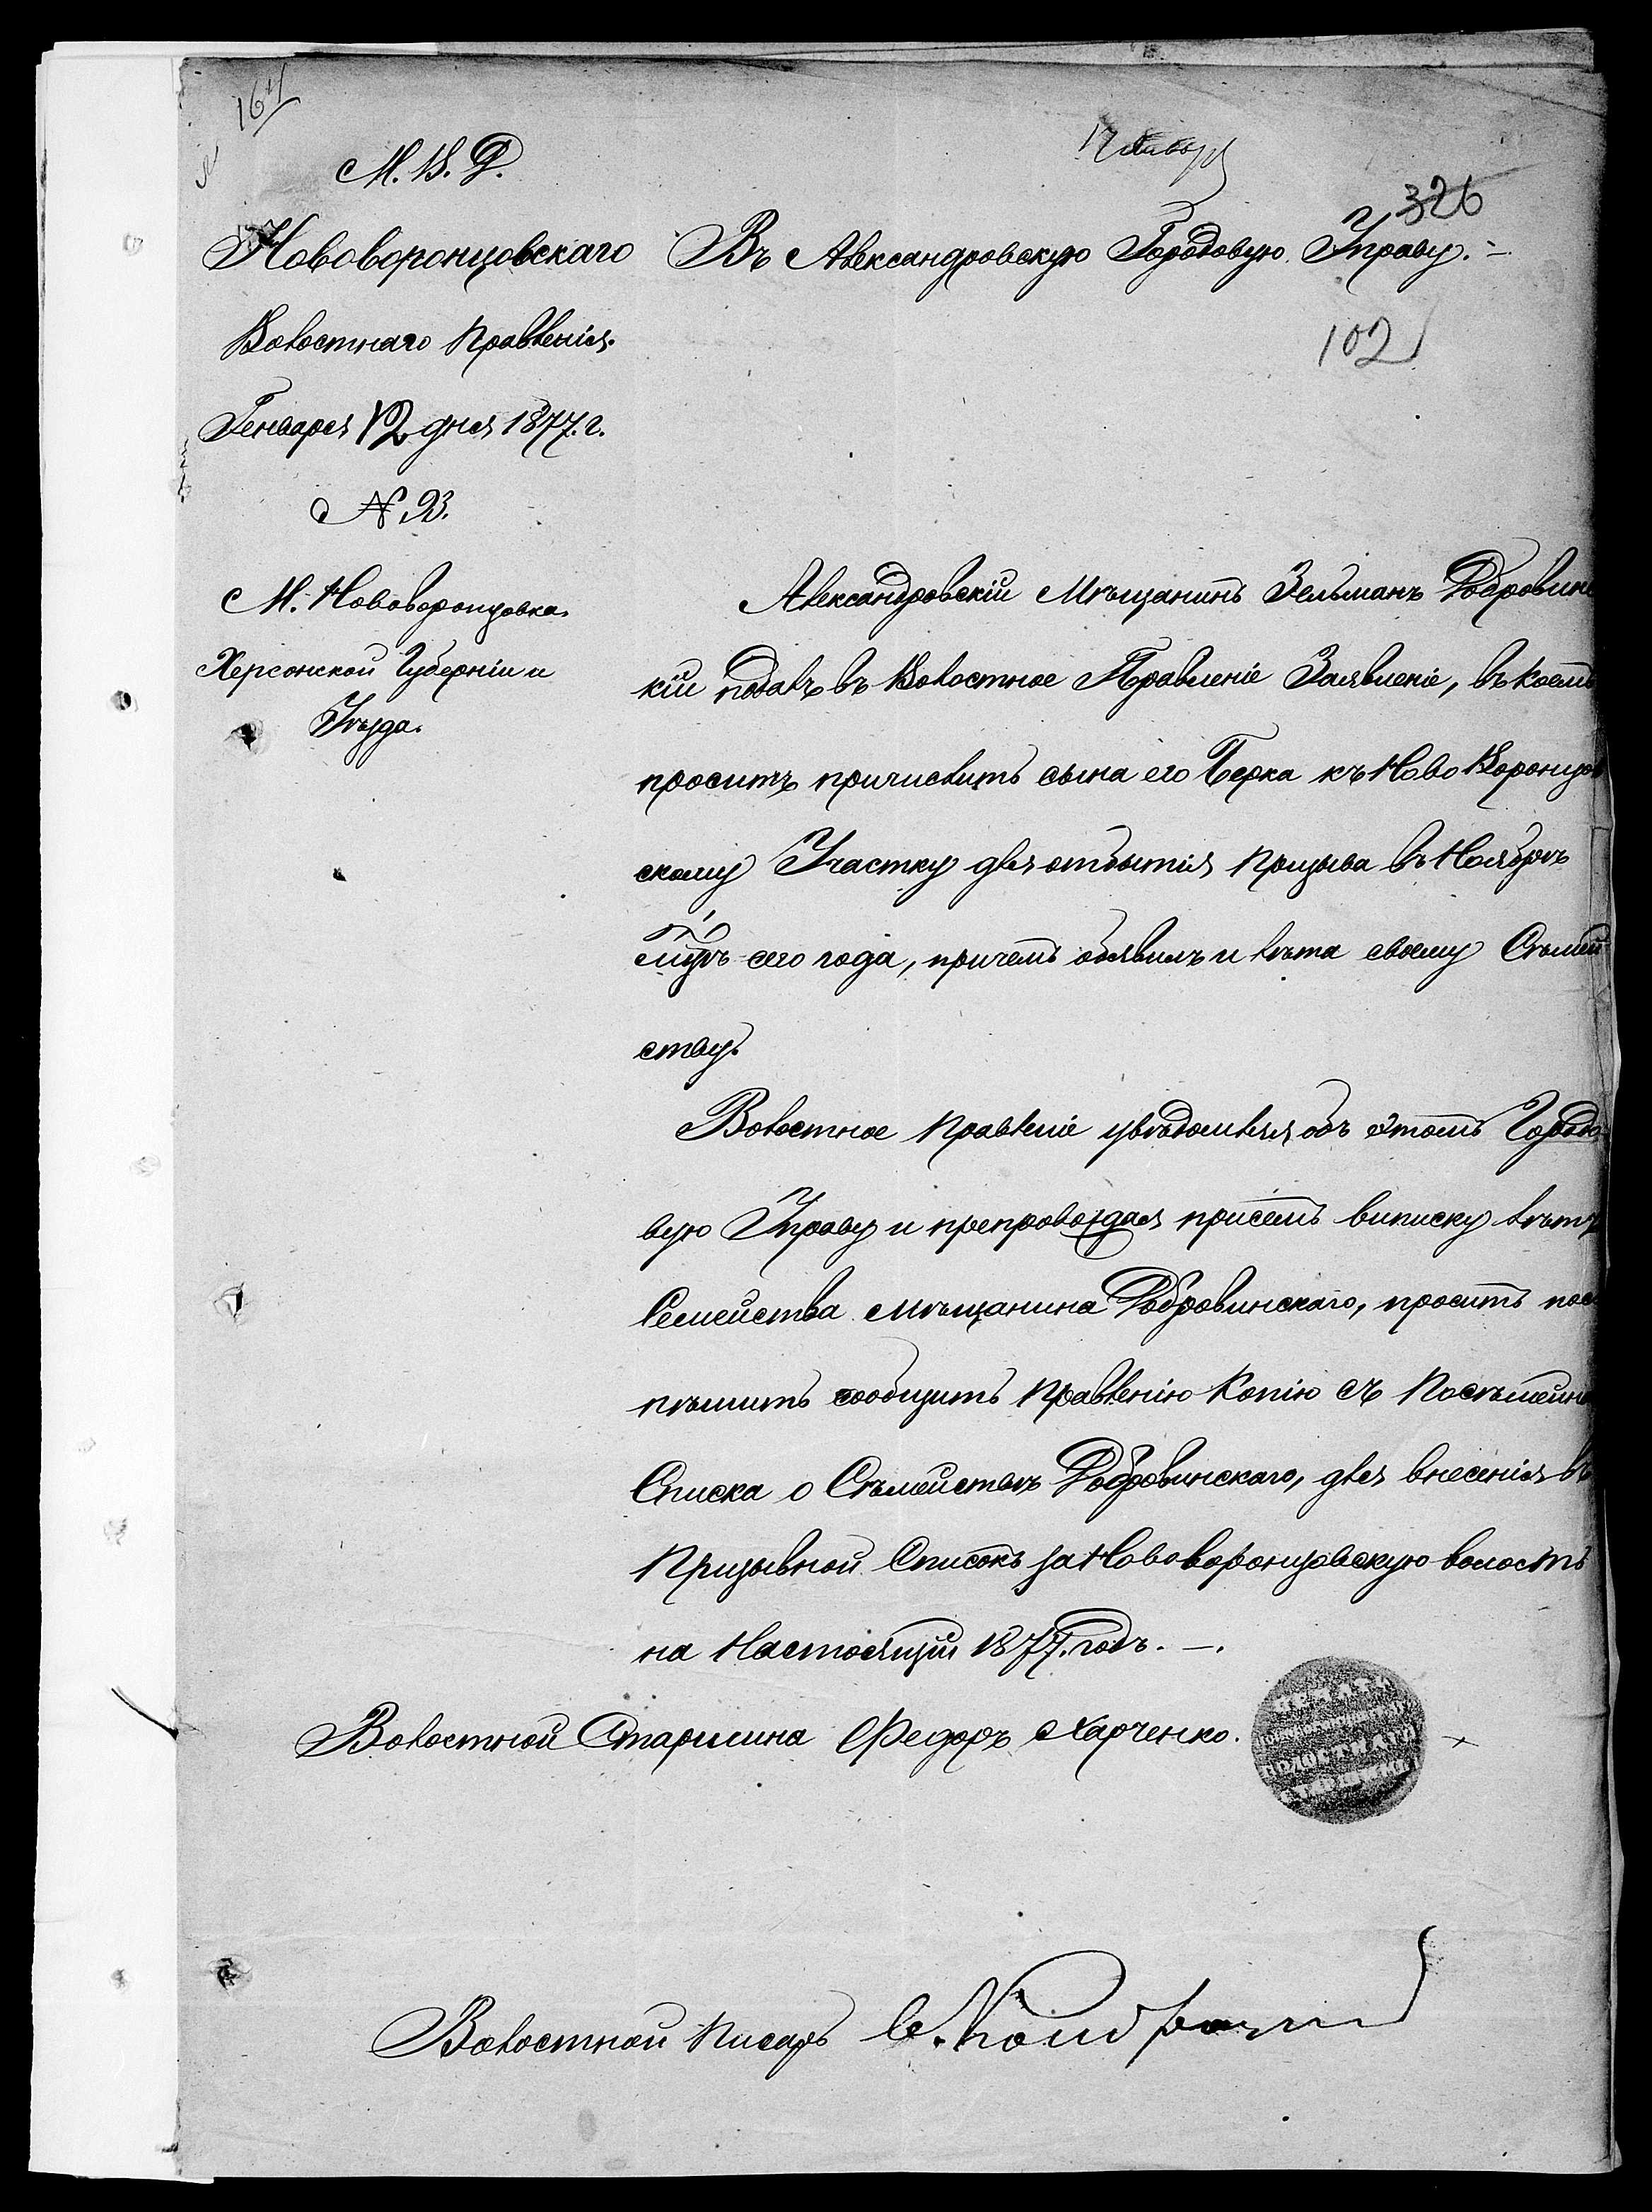 164
М. В. Д.
17 Января
326
Нововоронцовскаго
Волостнаго Правленія.
Генваря 12 дня 1877. г.
№ 93.
М. Нововоронцовка.
Херсонской Губерніи и
Уѣзда.
Въ Александровскую Городовую Управу. –
102
Александровскій Мѣщанинъ Зельманъ Добровинс
кій подалъ въ Волостное Правленіе Заявленіе, въ коемъ
проситъ причислить сына его Берка къ Ново Воронцов
скому Участку для отбытія Призыва въ Ноябрѣ
сего года, причемъ объявилъ и лѣта своему Сѣмей
ству.
Волостное Правленіе увѣдомляя объ этомъ Городо
вую Управу и препровождая присемъ выписку лѣтъ
Семейства мѣщанина Добровинскаго, проситъ пос
пѣшить сообщить Правленію Копію съ Посѣмейна
Списка о Сѣмействѣ Добровинскаго, для внесенія въ
Призывной Списокъ за Нововоронцовскую волость
на Настоящій 1877. годъ. –.
Волостной Старшина Федоръ Харченко.
ПЕЧАТЬ
ВОЛОСТНАГО
Волостной Писарь